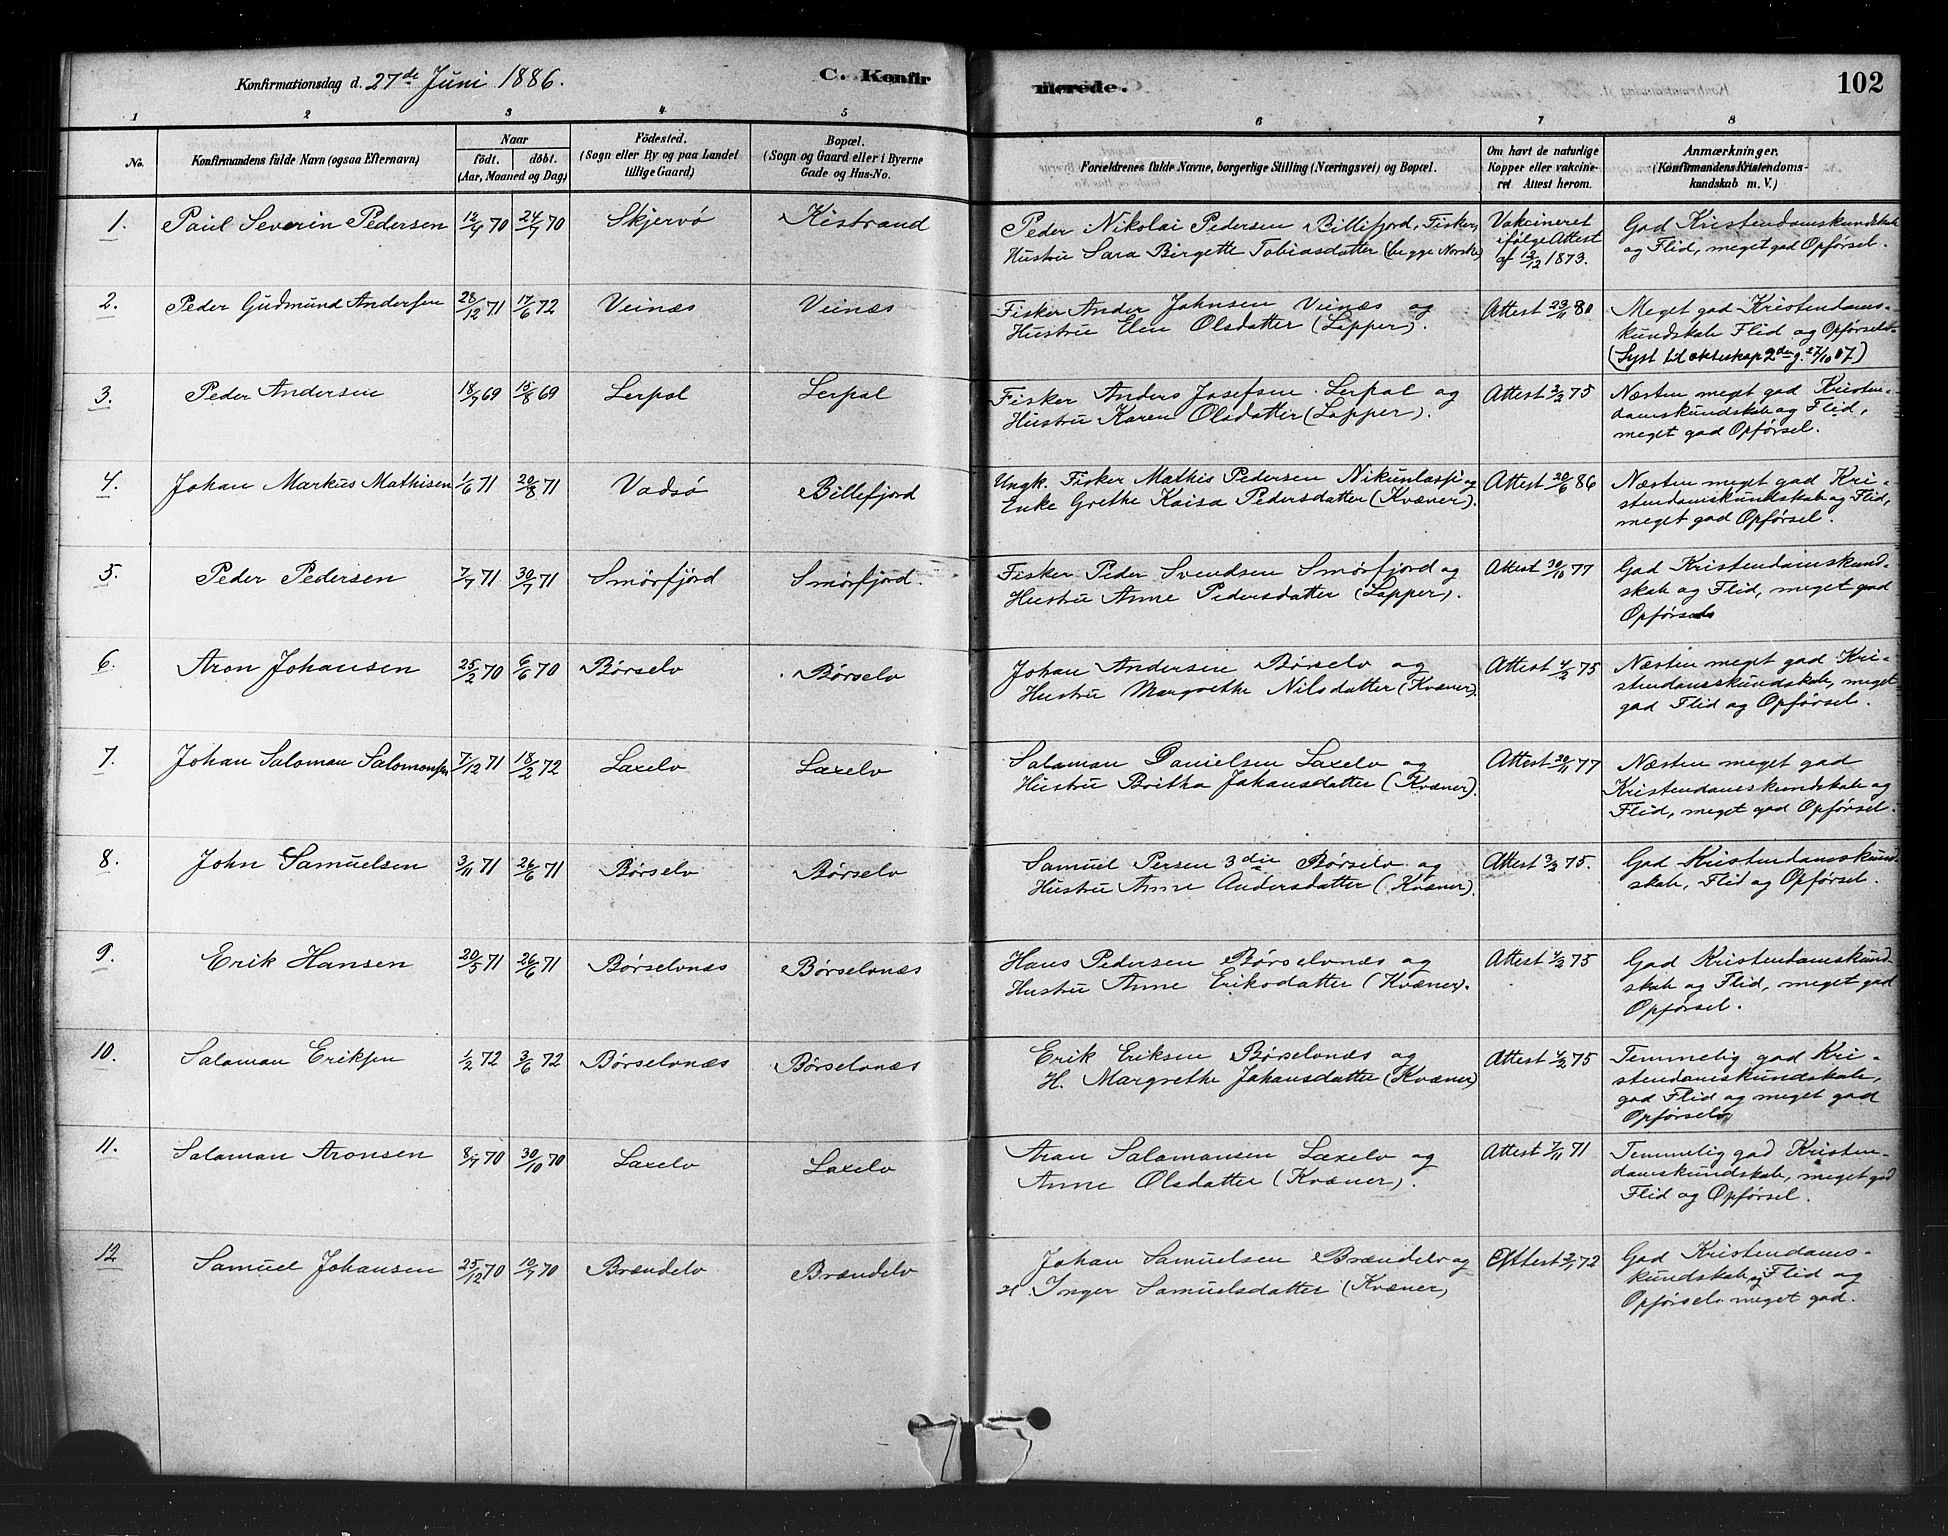 Konfirmationsdag d. 27de Juni 1886.
C. Konfirmerede.
102
1 2 3 4 5 6 7 8
No.
Konfirmandens fulde Navn (ogsaa Efternavn)
Naar
födt. döbt.
(Aar, Maaned og Dag)
Födested.
(Sogn eller By og paa Landet
tillige Gaard)
Bopæl.
(Sogn og Gaard eller i Byerne
Gade og Hus-No.
Forældrenes fulde Navne, borgerlige Stilling (Næringsvei) og Bopæl.
Om havt de naturlige
Kopper eller vakcine-
ret Attest herom.
Anmærkninger.
(Konfirmandens Kristendoms-
kundskab m. V.)
1. Paul Severin Pedersen 12/4 70 24/7 70 Skjervö Kistrand
Peder Nikolai Pedersen Billifjord, Fisker,
Hustru Sara Birgette Tobiasdatter (begge Norske)
Vakcineret
ifølge Attest
af 12/12 1873.
God Kristendomskundskab
og Flid, meget god Opførsel.
2. Peder Gudmund Andersen 28/12 71 17/6 72 Veinæs Veinæs
Fisker Ander Johnsen Veinæs og
Hustru Elen Olsdatter (Lapper).
Attest 23/11 80
Meget god Kristendoms-
kundskab Flid og Opførsel.
(Lyst til ekteskap 2den g. 27/10 07)
3. Peder Andersen 18/7 69 15/8 69 Lerpol Lerpol
Fisker Anders Josefsen Lerpol og
Hustru Karen Olsdatter (Lapper).
Attest 3/2 75
Næsten meget god Kristen-
domskundskab og Flid,
meget god Opførsel.
4. Johan Markus Mathisen 1/6 71 20/8 71 Vadsö Billefjord
Ungk. Fisker Mathis Pedersen Nikunlassi og
Enke Grethe Kaisa Pedersdatter (Kvæner).
Attest 20/6 86
Næsten meget god Kri-
stendomskundskab og Flid,
meget god Opførsel.
5. Peder Pedersen 7/7 71 30/7 71 Smörfjord Smörfjord.
Fisker Peder Svendsen Smörfjord og
Hustru Anne Pedersdatter (Lapper).
Attest 30/10 77
God Kristendomskund-
skab og Flid, meget god
Opførsel
6. Aron Johansen 25/2 70 6/6 70 Börselv Börselv
Johan Andersen Börselv og
Hustru Margrethe Nilsdatter (Kvæner).
Attest 4/2 75
Næsten meget god Kri-
stendomskundskab, meget
god Flid og Opførsel.
7. Johan Salomon Salomonsen 7/12 71 18/2 72 Laxelv Laxelv
Salamon Danielsen Laxelv og
Hustru Britha Johansdatter (Kvæner).
Attest 20/11 77
Næsten meget god
Kristendomskundskab og
Flid, meget god Opførsel.
8. John Samuelsen 3/11 71 26/6 71 Börselv Börselv
Samuel Persen 3die Börselv og
Hustru Anne Andersdatter (Kvæner).
Attest 3/2 75.
God Kristendomskund-
skab, Flid og Opførsel.
9. Erik Hansen 20/5 71 26/6 71 Börselvnæs Börselvnæs
Hans Pedersen Börselvnæs og
Hustru Anne Eriksdatter (Kvæner).
Attest 4/2 75
God Kristendomskund-
skab og Flid, meget god
Opførsel.
10. Salamon Eriksen 1/2 72 3/6 72 Börselvnæs Börselvnæs
Erik Eriksen Börselvnæs og
H. Margrethe Johansdatter (Kvæner)
Attest 4/2 75
Temmelig god Kri-
stendomskundskab,
god Flid og meget god
Opførsel
11. Salaman Aronsen 8/7 70 30/10 70 Laxelv Laxelv
Aron Salamonsen Laxelv og
Anne Olsdatter (Kvæner).
Attest 7/11 71
Temmelig god Kristen-
domskundskab, meget god
Flid og Opførsel.
12 Samuel Johansen 25/12 70 10/7 70 Brændelv Brændelv
Johan Samuelsen Brændelv og
H. Inger Samuelsdatter (Kvæner)
Attest 2/1 72
God Kristendoms-
kundskab, og Flid og
Opførsel meget god.